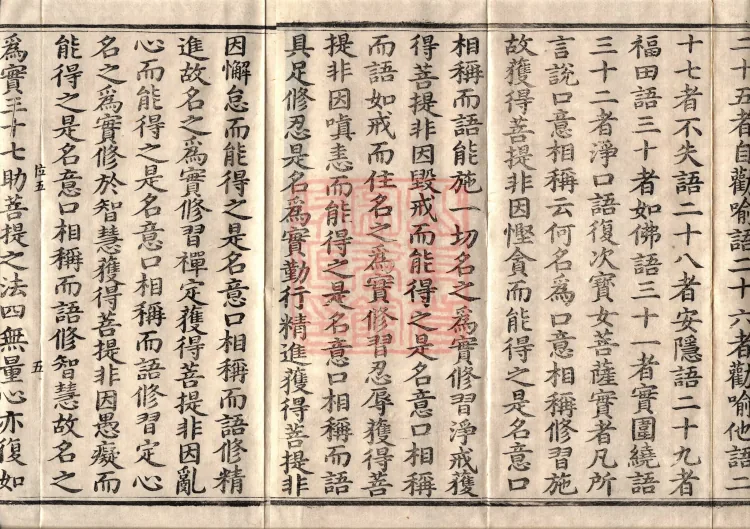 二十五者自勸喻語二十六者勸喻他語二
十七者不失語二十八者安隱語二十九者
福田語三十者如佛語三十一者實圍繞語
三十二者淨口語復次寶女菩薩實者凡所
言說口意相稱云何名為口意相稱修習施
故獲得菩提非因慳貪而能得之是名意口
相稱而語能施一切名之為實修習淨戒獲
得菩提非因毀戒而能得之是名意口相稱
而語如戒而住名之為實修習忍辱獲得菩
提非因嗔恚而能得之是名意口相稱而語
具足修忍是名為實勤行精進獲得菩提非
因懈怠而能得之是名意口相稱而語修精
進故名之為實修習禪定獲得菩提非因亂
心而能得之是名意口相稱而語修習定心
名之為實修於智慧獲得菩提非因愚癡而
能得之是名意口相稱而語修智慧故名之
五
為實三十七助菩提之法四無量心亦復如